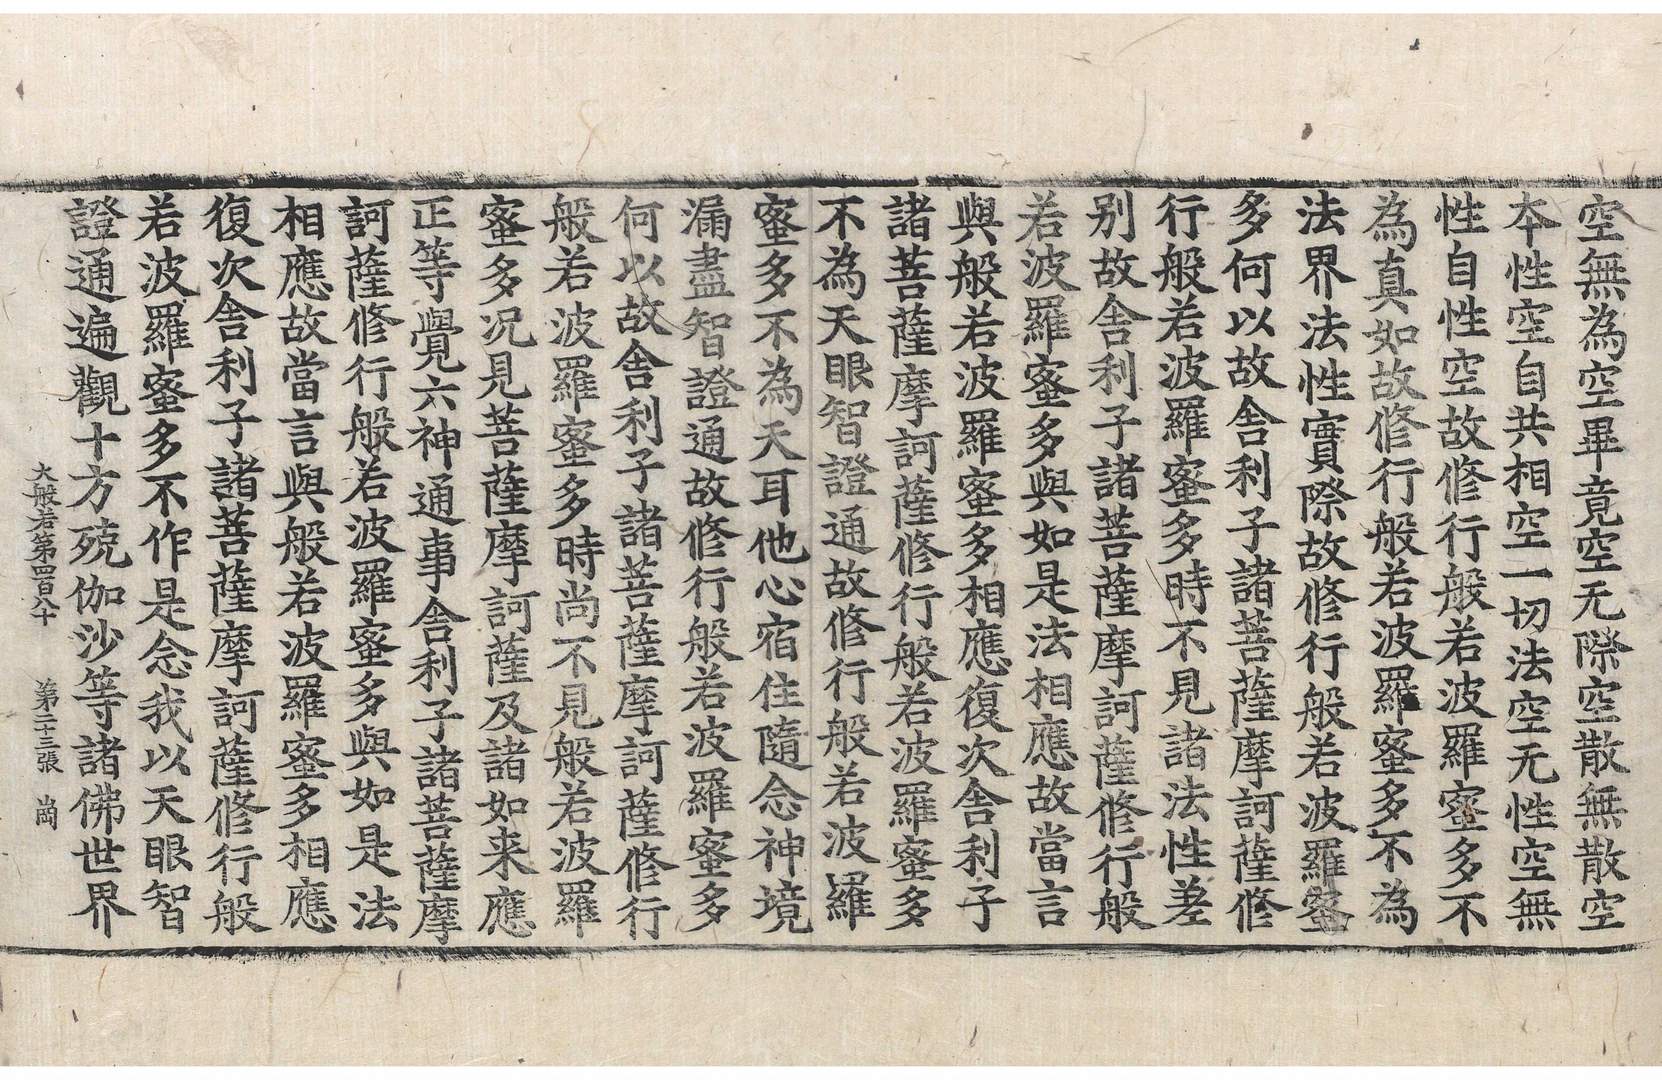 空無為空畢竟空无際空散無散空
本性空自共相空一切法空无性空無
性自性空故修行般若波羅蜜多不
為真如故修行般若波羅蜜多不為
法界法性實際故修行般若波羅蜜
多何以故舍利子諸菩薩摩訶薩修
行般若波羅蜜多時不見諸法性差
別故舍利子諸菩薩摩訶薩修行般
若波羅蜜多與如是法相應故當言
與般若波羅蜜多相應復次舍利子
諸菩薩摩訶薩修行般若波羅蜜多
不為天眼智證通故修行般若波羅
蜜多不為天耳他心宿住隨念神境
漏盡智證通故修行般若波羅蜜多
何以故舍利子諸菩薩摩訶薩修行
般若波羅蜜多時尚不見般若波羅
蜜多况見菩薩摩訶薩及諸如来應
正等覺六神通事舍利子諸菩薩摩
訶薩修行般若波羅蜜多與如是法
相應故當言與般若波羅蜜多相應
復次舍利子諸菩薩摩訶薩修行般
若波羅蜜多不作是念我以天眼智
證通遍觀十方殑伽沙等諸佛世界
大般若第四百八十 第二十三張 崗